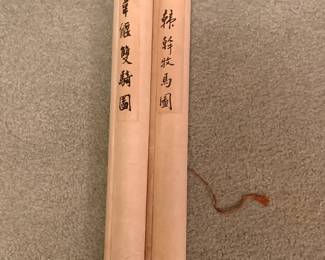 韋偃雙騎圖
韓幹牧馬圖